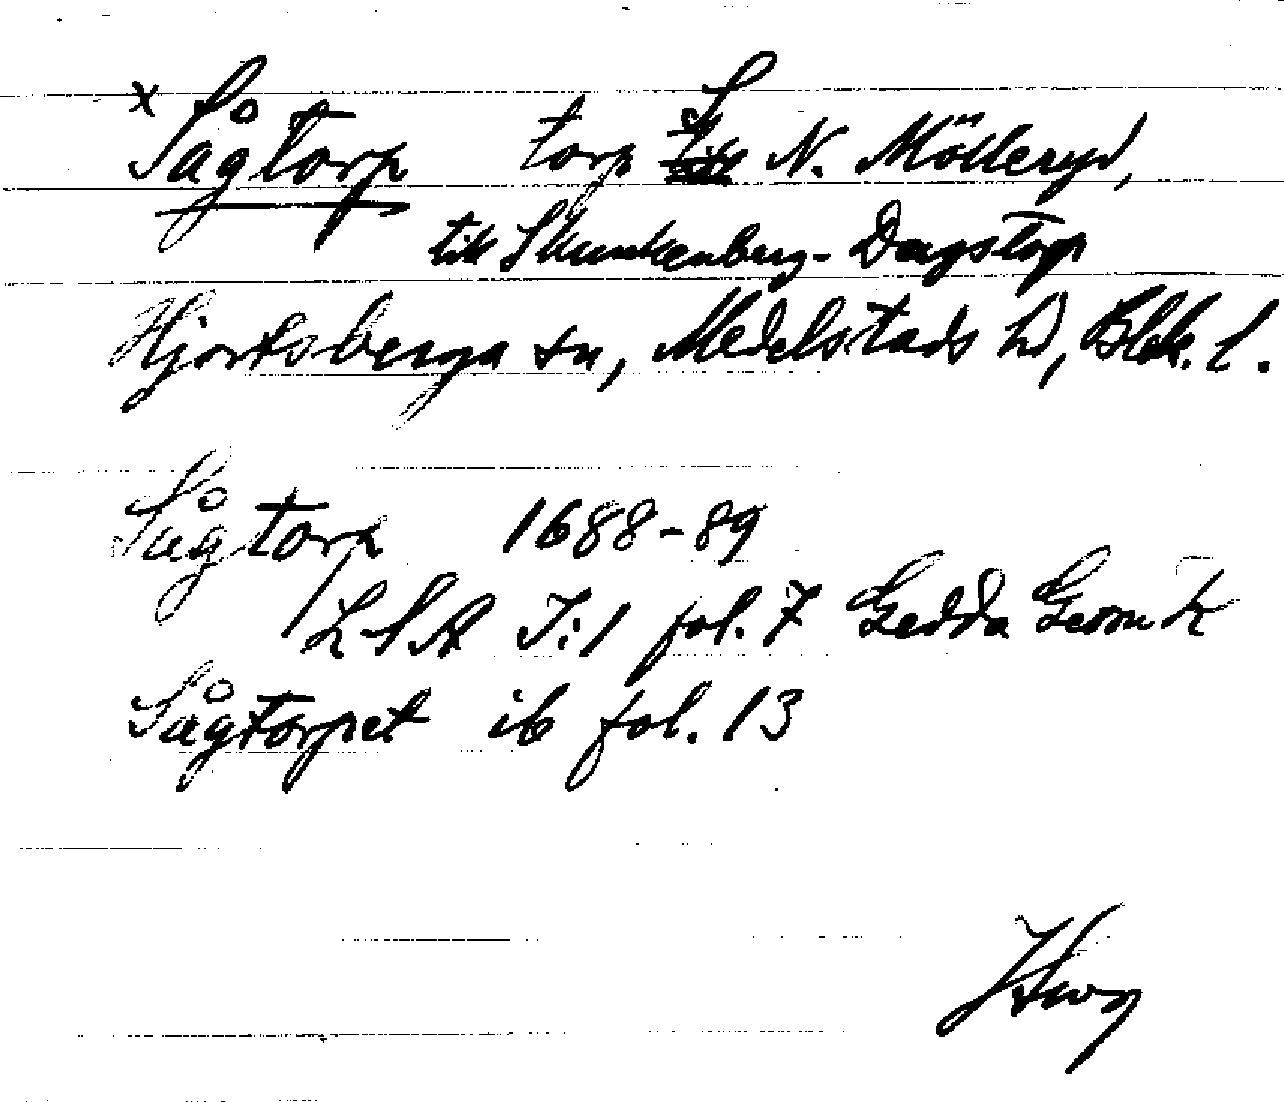 x Sågtorp torp S N. Mölleryd,
till Skunkenberg-Dagstorp
Hjortsberga sn, Medelstads hd, Blek. l.
Sågtorp 1688-89
LSA I:1 fol. 7 Gedda Geom k
Sågtorpet ib fol. 13